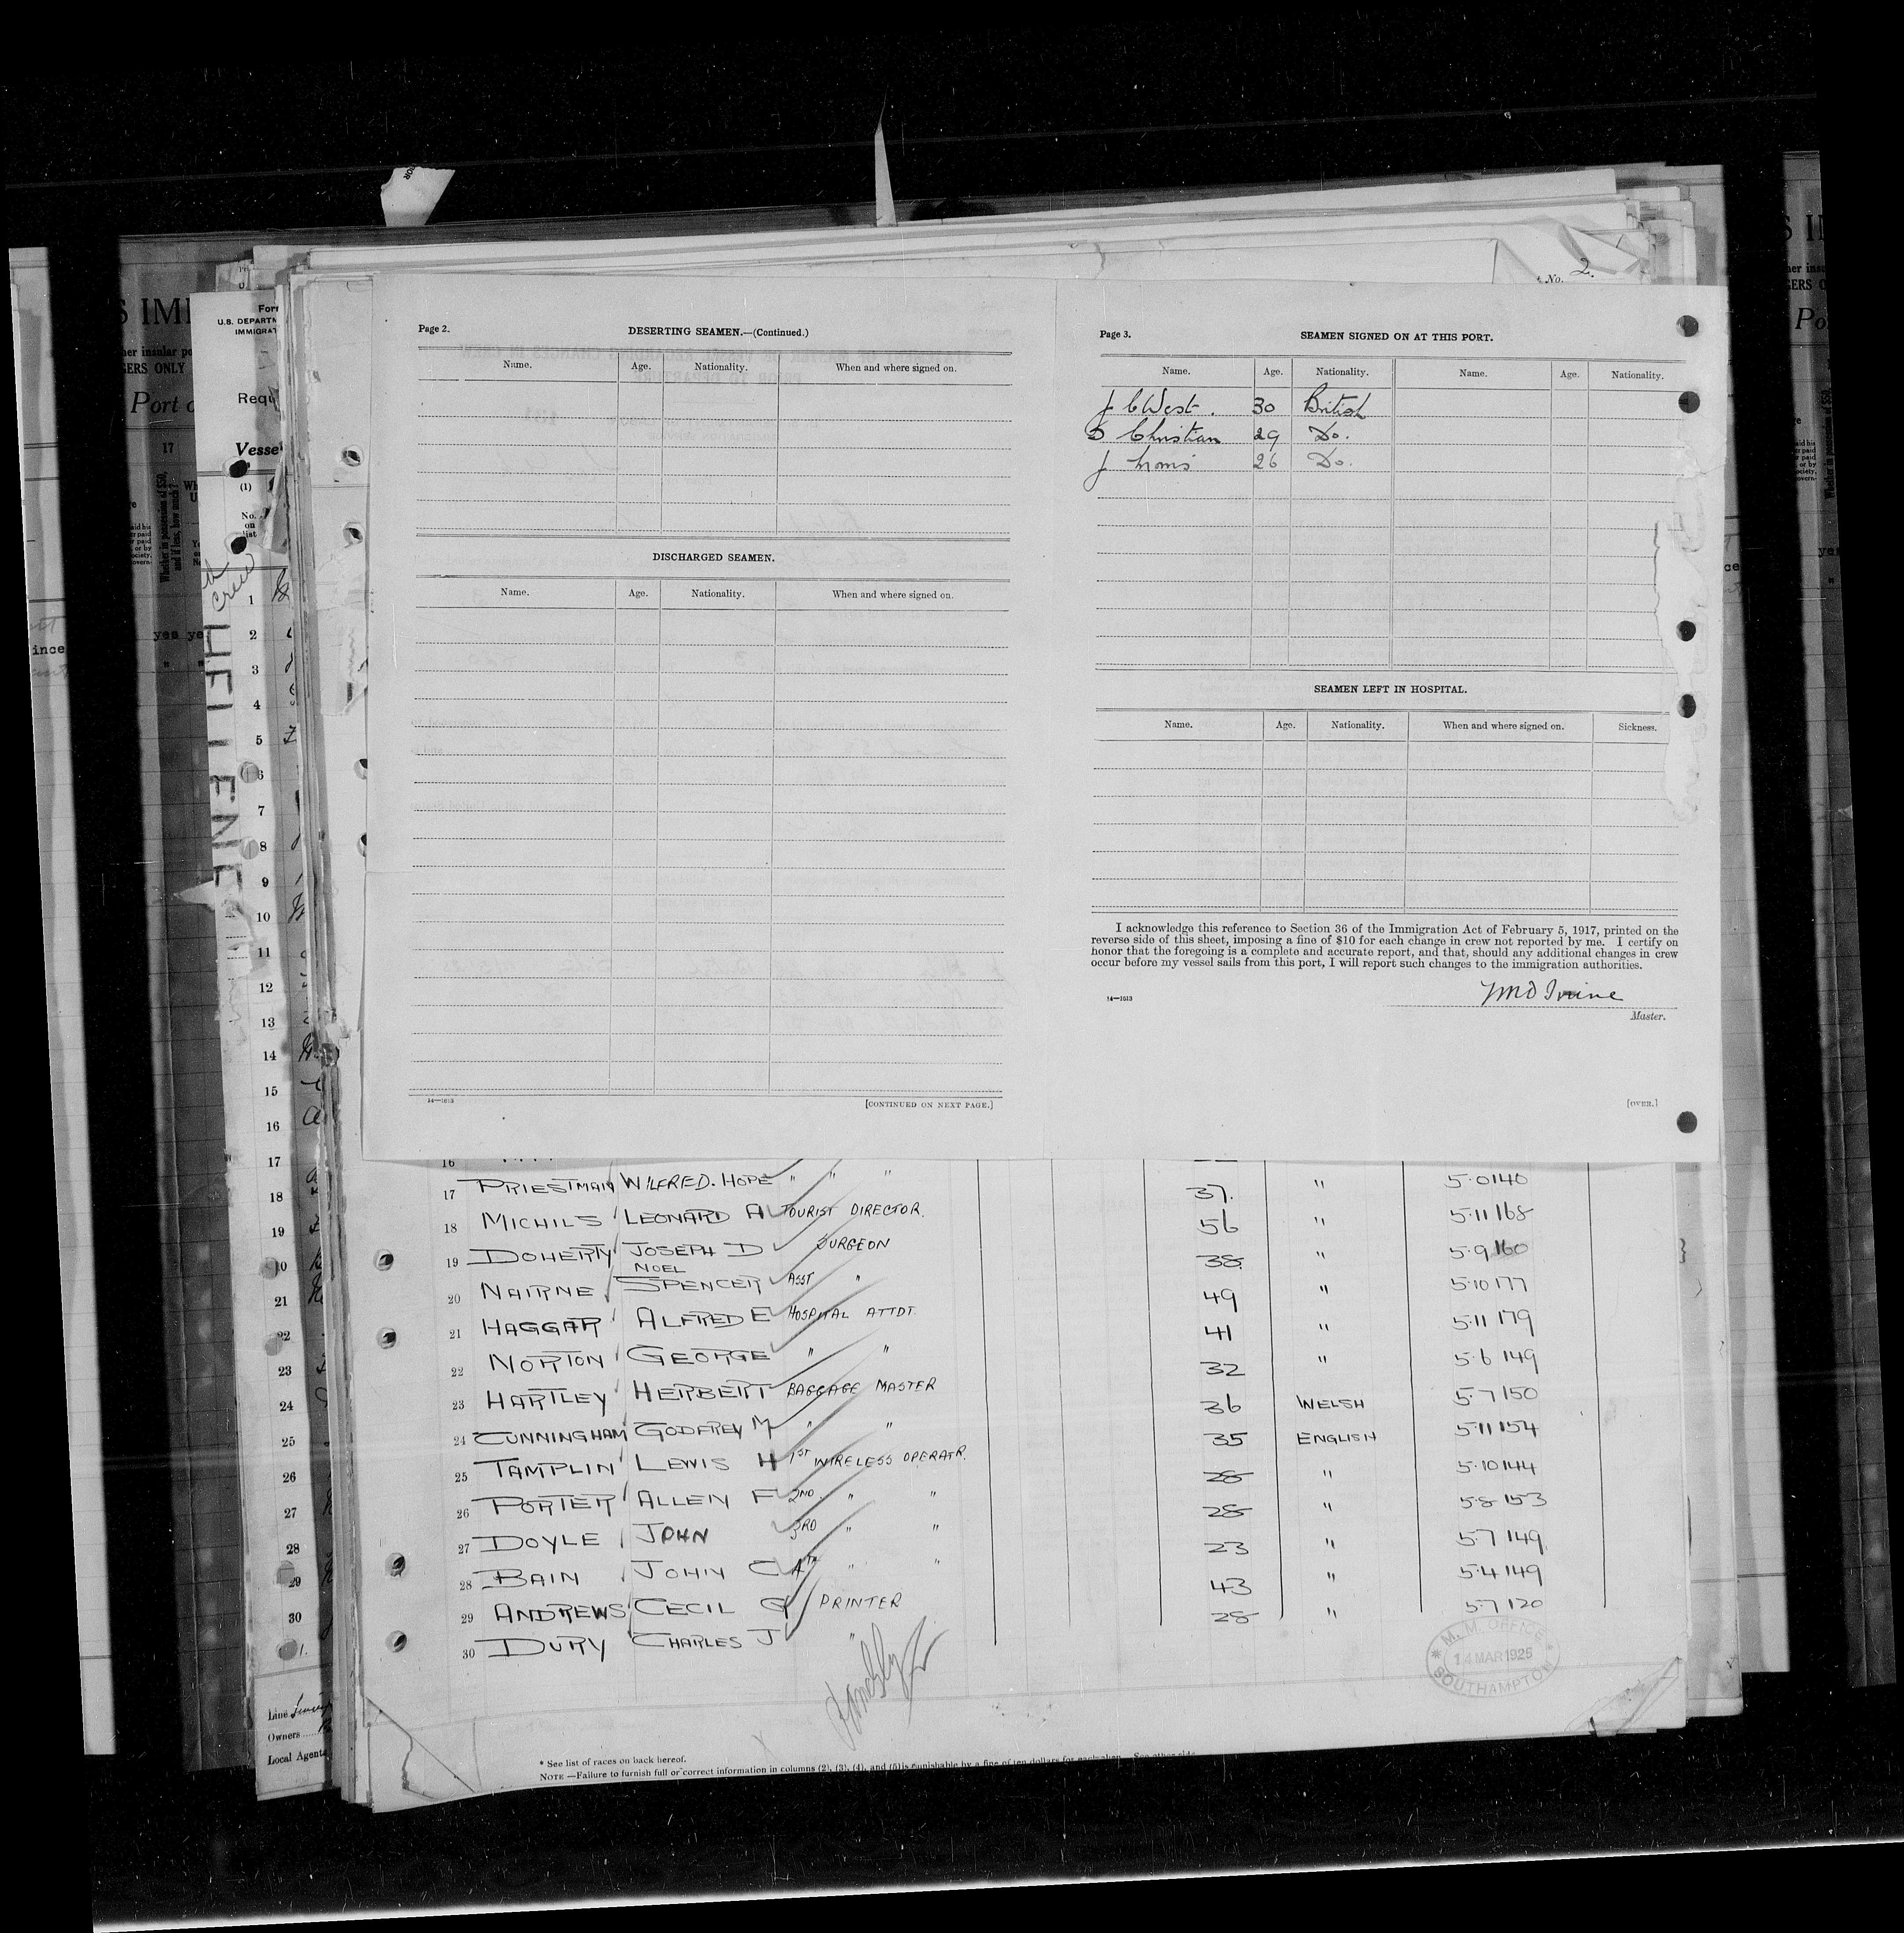 No. 2.
Page 2.
DESERTING SEAMEN.—(Continued.)
Name. Age. Nationality. When and where signed on.
DISCHARGED SEAMEN.
Name. Age. Nationality. When and where signed on.
14—1613
[CONTINUED ON NEXT PAGE.]
Page 3.
SEAMEN SIGNED ON AT THIS PORT.
Name. Age. Nationality. Name. Age. Nationality.
J C West. 30 British
Christian 29 Do.
J 26 Do.
SEAMEN LEFT IN HOSPITAL.
Name. Age. Nationality. When and where signed on. Sickness.
I acknowledge this reference to Section 36 of the Immigration Act of February 5, 1917, printed on the
reverse side of this sheet, imposing a fine of $10 for each change in crew not reported by me. I certify on
honor that the foregoing is a complete and accurate report, and that, should any additional changes in crew
occur before my vessel sails from this port, I will report such changes to the immigration authorities.
14—1613
Irvine
Master.
[OVER.]
16
17 PRIESTMAN WILFRED. HOPE " " " 37. " 5·0 140
18 MICHILS LEONARD A TOURIST DIRECTOR. 56 " 5·11 168
19 DOHERTY JOSEPH D SURGEON 38. " 5·9 160
NOEL
20 NAIRNE SPENCER ASST " 49 " 5·10 177
21 HAGGAR ALFRED E HOSPITAL ATTDT. 41 " 5·11 179
22 NORTON GEORGE " " 32 " 5·6 149
23 HARTLEY HERBERT BAGGAGE MASTER 36 WELSH 5·7 150
24 CUNNINGHAM GODFREY M " " 35 ENGLISH 5·11 154
25 TAMPLIN LEWIS H 1ST WIRELESS OPERATR. 28 " 5·10 144
26 PORTER ALLEN F 2ND " " 28 " 5·8 153
27 DOYLE JOHN 3RD " " 23 " 5·7 149
28 BAIN JOHN C 4TH " " 43 " 5·4 149
29 ANDREWS CECIL G PRINTER 28 " 5·7 120
30 DURY CHARLES J "
M. M. OFFICE
14 MAR 1925
SOUTHAMPTON
* See list of races on back hereof.
NOTE—Failure to furnish full or correct information in columns (2), (3), (4), and (5) is punishable by a fine of ten dollars for each alien. See other side.
U.S. DEPARTM
IMMIGRAT
Requ
Vessel
(1)
No.
on
list
crew
1
2
3
4
5
6
7
8
9
10
11
12
13
14
15
16
17
18
19
20
21
22
23
24
25
26
27
28
29
30
Line
Owners
Local Agents
S IMI
her insular po
GERS ONLY
Port o
17
Whether in possession of $50,
and if less, how much?
yes yes
ince